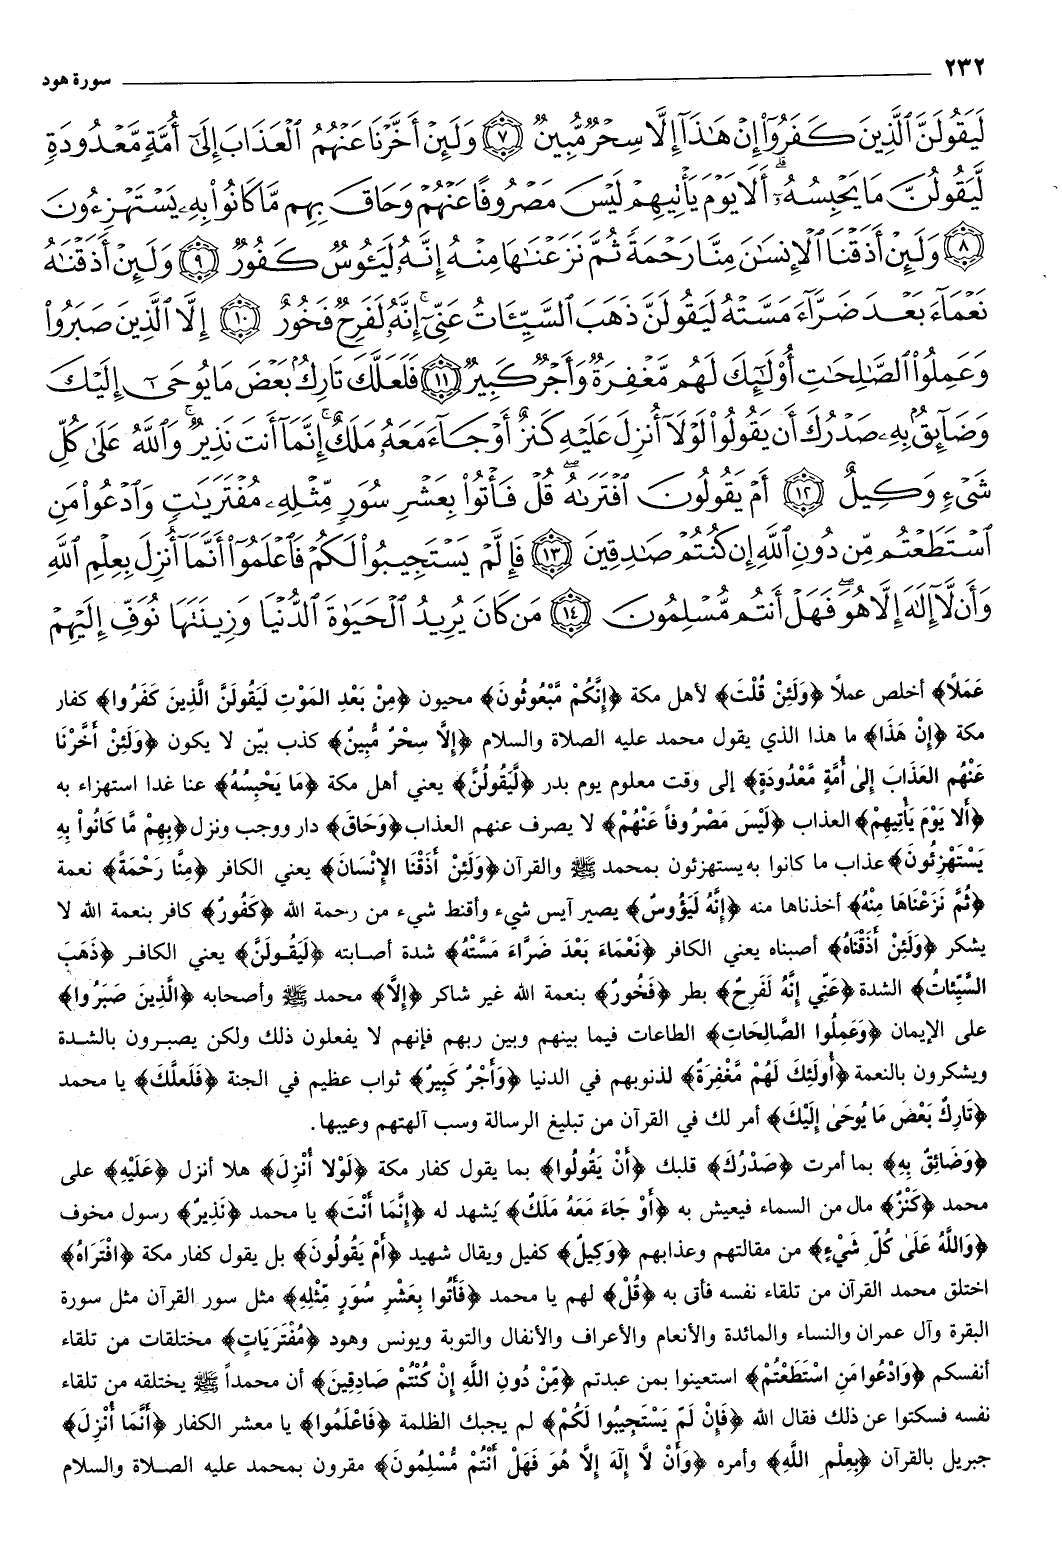 ٢٣٢ سورة هود
لَيَقُولَنَّ ٱلَّذِينَ كَفَرُوٓا۟ إِنْ هَٰذَآ إِلَّا سِحْرٌ مُّبِينٌ ٧ وَلَئِنْ أَخَّرْنَا عَنْهُمُ ٱلْعَذَابَ إِلَىٰٓ أُمَّةٍ مَّعْدُودَةٍ
لَّيَقُولُنَّ مَا يَحْبِسُهُۥٓ ۗ أَلَا يَوْمَ يَأْتِيهِمْ لَيْسَ مَصْرُوفًا عَنْهُمْ وَحَاقَ بِهِم مَّا كَانُوا۟ بِهِۦ يَسْتَهْزِءُونَ
٨ وَلَئِنْ أَذَقْنَا ٱلْإِنسَٰنَ مِنَّا رَحْمَةً ثُمَّ نَزَعْنَٰهَا مِنْهُ إِنَّهُۥ لَيَـُٔوسٌ كَفُورٌ ٩ وَلَئِنْ أَذَقْنَٰهُ
نَعْمَآءَ بَعْدَ ضَرَّآءَ مَسَّتْهُ لَيَقُولَنَّ ذَهَبَ ٱلسَّيِّـَٔاتُ عَنِّىٓ ۚ إِنَّهُۥ لَفَرِحٌ فَخُورٌ ١٠ إِلَّا ٱلَّذِينَ صَبَرُوا۟
وَعَمِلُوا۟ ٱلصَّٰلِحَٰتِ أُو۟لَٰٓئِكَ لَهُم مَّغْفِرَةٌ وَأَجْرٌ كَبِيرٌ ١١ فَلَعَلَّكَ تَارِكٌۢ بَعْضَ مَا يُوحَىٰٓ إِلَيْكَ
وَضَآئِقٌۢ بِهِۦ صَدْرُكَ أَن يَقُولُوا۟ لَوْلَآ أُنزِلَ عَلَيْهِ كَنزٌ أَوْ جَآءَ مَعَهُۥ مَلَكٌ ۚ إِنَّمَآ أَنتَ نَذِيرٌ ۚ وَٱللَّهُ عَلَىٰ كُلِّ
شَىْءٍ وَكِيلٌ ١٢ أَمْ يَقُولُونَ ٱفْتَرَىٰهُ ۖ قُلْ فَأْتُوا۟ بِعَشْرِ سُوَرٍ مِّثْلِهِۦ مُفْتَرَيَٰتٍ وَٱدْعُوا۟ مَنِ
ٱسْتَطَعْتُم مِّن دُونِ ٱللَّهِ إِن كُنتُمْ صَٰدِقِينَ ١٣ فَإِلَّمْ يَسْتَجِيبُوا۟ لَكُمْ فَٱعْلَمُوٓا۟ أَنَّمَآ أُنزِلَ بِعِلْمِ ٱللَّهِ
وَأَن لَّآ إِلَٰهَ إِلَّا هُوَ ۖ فَهَلْ أَنتُم مُّسْلِمُونَ ١٤ مَن كَانَ يُرِيدُ ٱلْحَيَوٰةَ ٱلدُّنْيَا وَزِينَتَهَا نُوَفِّ إِلَيْهِمْ
عَمَلًا﴾ أخلص عملًا ﴿وَلَئِنْ قُلْتَ﴾ لأهل مكة ﴿إِنَّكُمْ مَّبْعُوثُونَ﴾ محيون ﴿مِنْ بَعْدِ المَوْتِ لَيَقُولَنَّ الَّذِينَ كَفَرُوا﴾ كفار
مكة ﴿إِنْ هَذَا﴾ ما هذا الذي يقول محمد عليه الصلاة والسلام ﴿إِلَّا سِحْرٌ مُّبِينٌ﴾ كذب بيّن لا يكون ﴿وَلَئِنْ أَخَّرْنَا
عَنْهُم العَذَابَ إِلىٰ أُمَّةٍ مَّعْدُودَةٍ﴾ إلى وقت معلوم يوم بدر ﴿لَّيَقُولُنَّ﴾ يعني أهل مكة ﴿مَا يَحْبِسُهُ﴾ عنا غدا استهزاء به
﴿أَلا يَوْمَ يَأْتِيهِمْ﴾ العذاب ﴿لَيْسَ مَصْرُوفاً عَنْهُمْ﴾ لا يصرف عنهم العذاب ﴿وَحَاقَ﴾ دار ووجب ونزل ﴿بِهِمْ مَّا كَانُواْ بِهِ
يَسْتَهْزِئُونَ﴾ عذاب ما كانوا به يستهزئون بمحمد ﷺ والقرآن ﴿وَلَئِنْ أَذَقْنَا الإِنْسَانَ﴾ يعني الكافر ﴿مِنَّا رَحْمَةً﴾ نعمة
﴿ثُمَّ نَزَعْنَاهَا مِنْهُ﴾ أخذناها منه ﴿إِنَّهُ لَيَؤُوسٌ﴾ يصير آيس شيء وأقنط شيء من رحمة الله ﴿كَفُورٌ﴾ كافر بنعمة الله لا
يشكر ﴿وَلَئِنْ أَذَقْنَاهُ﴾ أصبناه يعني الكافر ﴿نَعْمَاءَ بَعْدَ ضَرَّاءَ مَسَّتْهُ﴾ شدة أصابته ﴿لَيَقُولَنَّ﴾ يعني الكافر ﴿ذَهَبَ
السَّيِّئاتُ﴾ الشدة ﴿عَنِّي إِنَّهُ لَفَرِحٌ﴾ بطر ﴿فَخُورٌ﴾ بنعمة الله غير شاكر ﴿إِلَّا﴾ محمد ﷺ وأصحابه ﴿الَّذِينَ صَبَرُوا﴾
على الإيمان ﴿وَعَمِلُوا الصَّالِحَاتِ﴾ الطاعات فيما بينهم وبين ربهم فإنهم لا يفعلون ذلك ولكن يصبرون بالشدة
ويشكرون بالنعمة ﴿أُولَئِكَ لَهُم مَّغْفِرَةٌ﴾ لذنوبهم في الدنيا ﴿وَأَجْرٌ كَبِيرٌ﴾ ثواب عظيم في الجنة ﴿فَلَعلَّكَ﴾ يا محمد
﴿تَارِكٌ بَعْضَ مَا يُوحَىٰ إِلَيْكَ﴾ أمر لك في القرآن من تبليغ الرسالة وسب آلهتهم وعيبها.
﴿وَضَائِقٌ بِهِ﴾ بما أمرت ﴿صَدْرُكَ﴾ قلبك ﴿أَنْ يَقُولُوا﴾ بما يقول كفار مكة ﴿لَوْلا أُنْزِلَ﴾ هلا أنزل ﴿عَلَيْهِ﴾ على
محمد ﴿كَنْزٌ﴾ مال من السماء فيعيش به ﴿أَوْ جَاءَ مَعَهُ مَلَكٌ﴾ يُشهد له ﴿إِنَّمَا أَنْتَ﴾ يا محمد ﴿نَذِيرٌ﴾ رسول مخوف
﴿وَاللَّهُ عَلَىٰ كُلِّ شَيْءٍ﴾ من مقالتهم وعذابهم ﴿وَكِيلٌ﴾ كفيل ويقال شهيد ﴿أَمْ يَقُولُونَ﴾ بل يقول كفار مكة ﴿افْتَرَاهُ﴾
اختلق محمد القرآن من تلقاء نفسه فأتى به ﴿قُلْ﴾ لهم يا محمد ﴿فَأْتُوا بِعَشْرِ سُوَرٍ مِّثْلِهِ﴾ مثل سور القرآن مثل سورة
البقرة وآل عمران والنساء والمائدة والأنعام والأعراف والأنفال والتوبة ويونس وهود ﴿مُفْتَرَيَاتٍ﴾ مختلقات من تلقاء
أنفسكم ﴿وَادْعُوا مَنِ اسْتَطَعْتُمْ﴾ استعينوا بمن عبدتم ﴿مِّنْ دُونِ اللَّهِ إِنْ كُنْتُمْ صَادِقِينَ﴾ أن محمداً ﷺ يختلقه من تلقاء
نفسه فسكتوا عن ذلك فقال الله ﴿فَإِنْ لَمّ يَسْتَجِيبُوا لَكُمْ﴾ لم يجبك الظلمة ﴿فَاعْلَمُوا﴾ يا معشر الكفار ﴿أَنَّمَا أُنْزِلَ﴾
جبريل بالقرآن ﴿بِعِلْمِ اللَّهِ﴾ وأمره ﴿وَأَنْ لَّا إِلَهَ إِلَّا هُوَ فَهَلْ أَنْتُمْ مُّسْلِمُونَ﴾ مقرون بمحمد عليه الصلاة والسلام